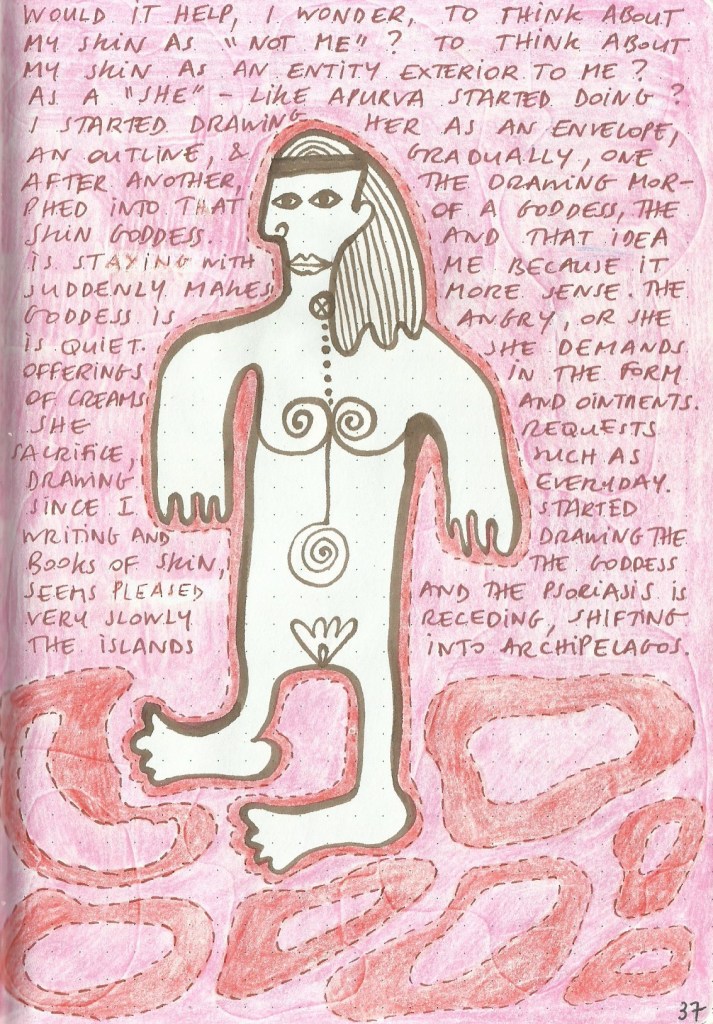 WOULD IT HELP, I WONDER, TO THINK ABOUT
MY SKIN AS "NOT ME"? TO THINK ABOUT
MY SKIN AS AN ENTITY EXTERIOR TO ME?
AS A "SHE" – LIKE APURVA STARTED DOING?
I STARTED DRAWING HER AS AN ENVELOPE,
AN OUTLINE, & GRADUALLY, ONE
AFTER ANOTHER, THE DRAWING MOR-
PHED INTO THAT OF A GODDESS, THE
SKIN GODDESS. AND THAT IDEA
IS STAYING WITH ME BECAUSE IT
SUDDENLY MAKES MORE SENSE. THE
GODDESS IS ANGRY, OR SHE
IS QUIET. SHE DEMANDS
OFFERINGS IN THE FORM
OF CREAMS AND OINTMENTS.
SHE REQUESTS
SACRIFICE, SUCH AS
DRAWING EVERYDAY.
SINCE I STARTED
WRITING AND DRAWING THE
BOOKS OF SKIN, THE GODDESS
SEEMS PLEASED AND THE PSORIASIS IS
VERY SLOWLY RECEDING, SHIFTING
THE ISLANDS INTO ARCHIPELAGOS.
37